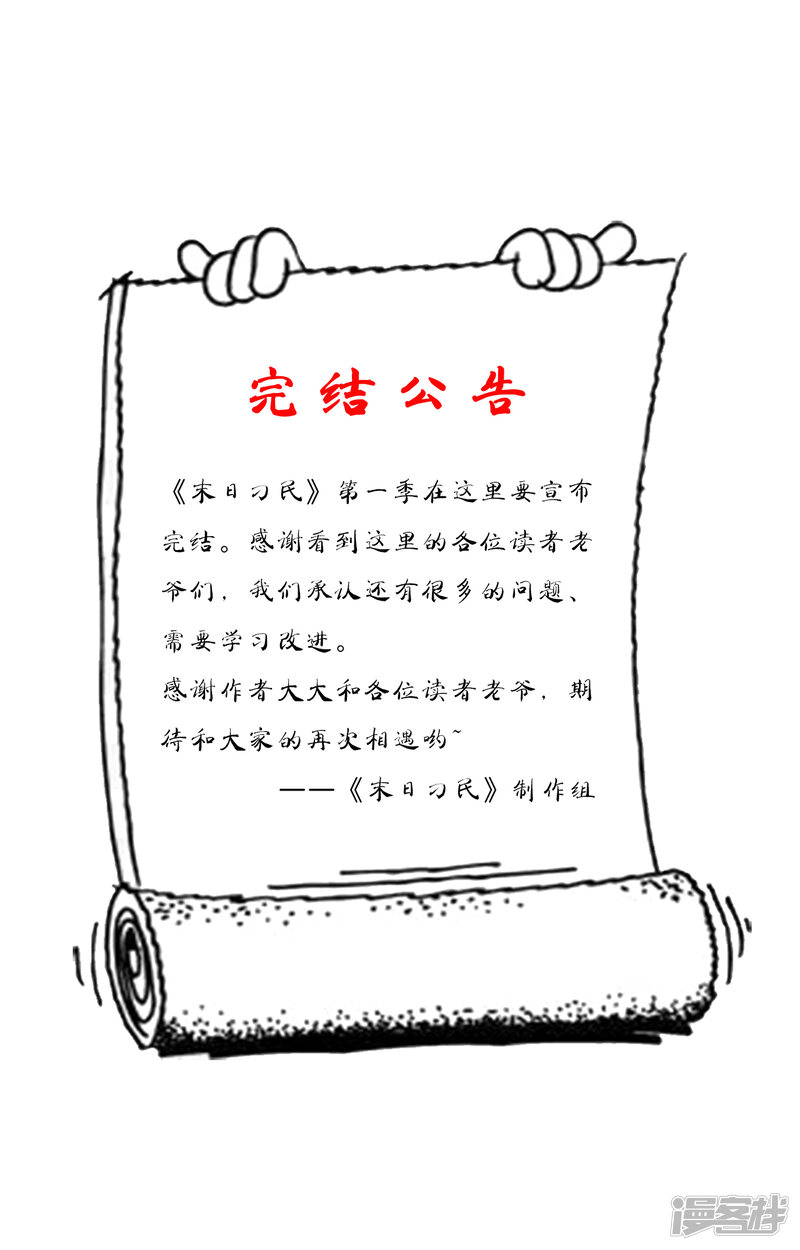 完结公告
《末日刁民》第一季在这里要宣布
完结。感谢看到这里的各位读者老
爷们，我们承认还有很多的问题、
需要学习改进。
感谢作者大大和各位读者老爷，期
待和大家的再次相遇哟~
——《末日刁民》制作组
漫客栈